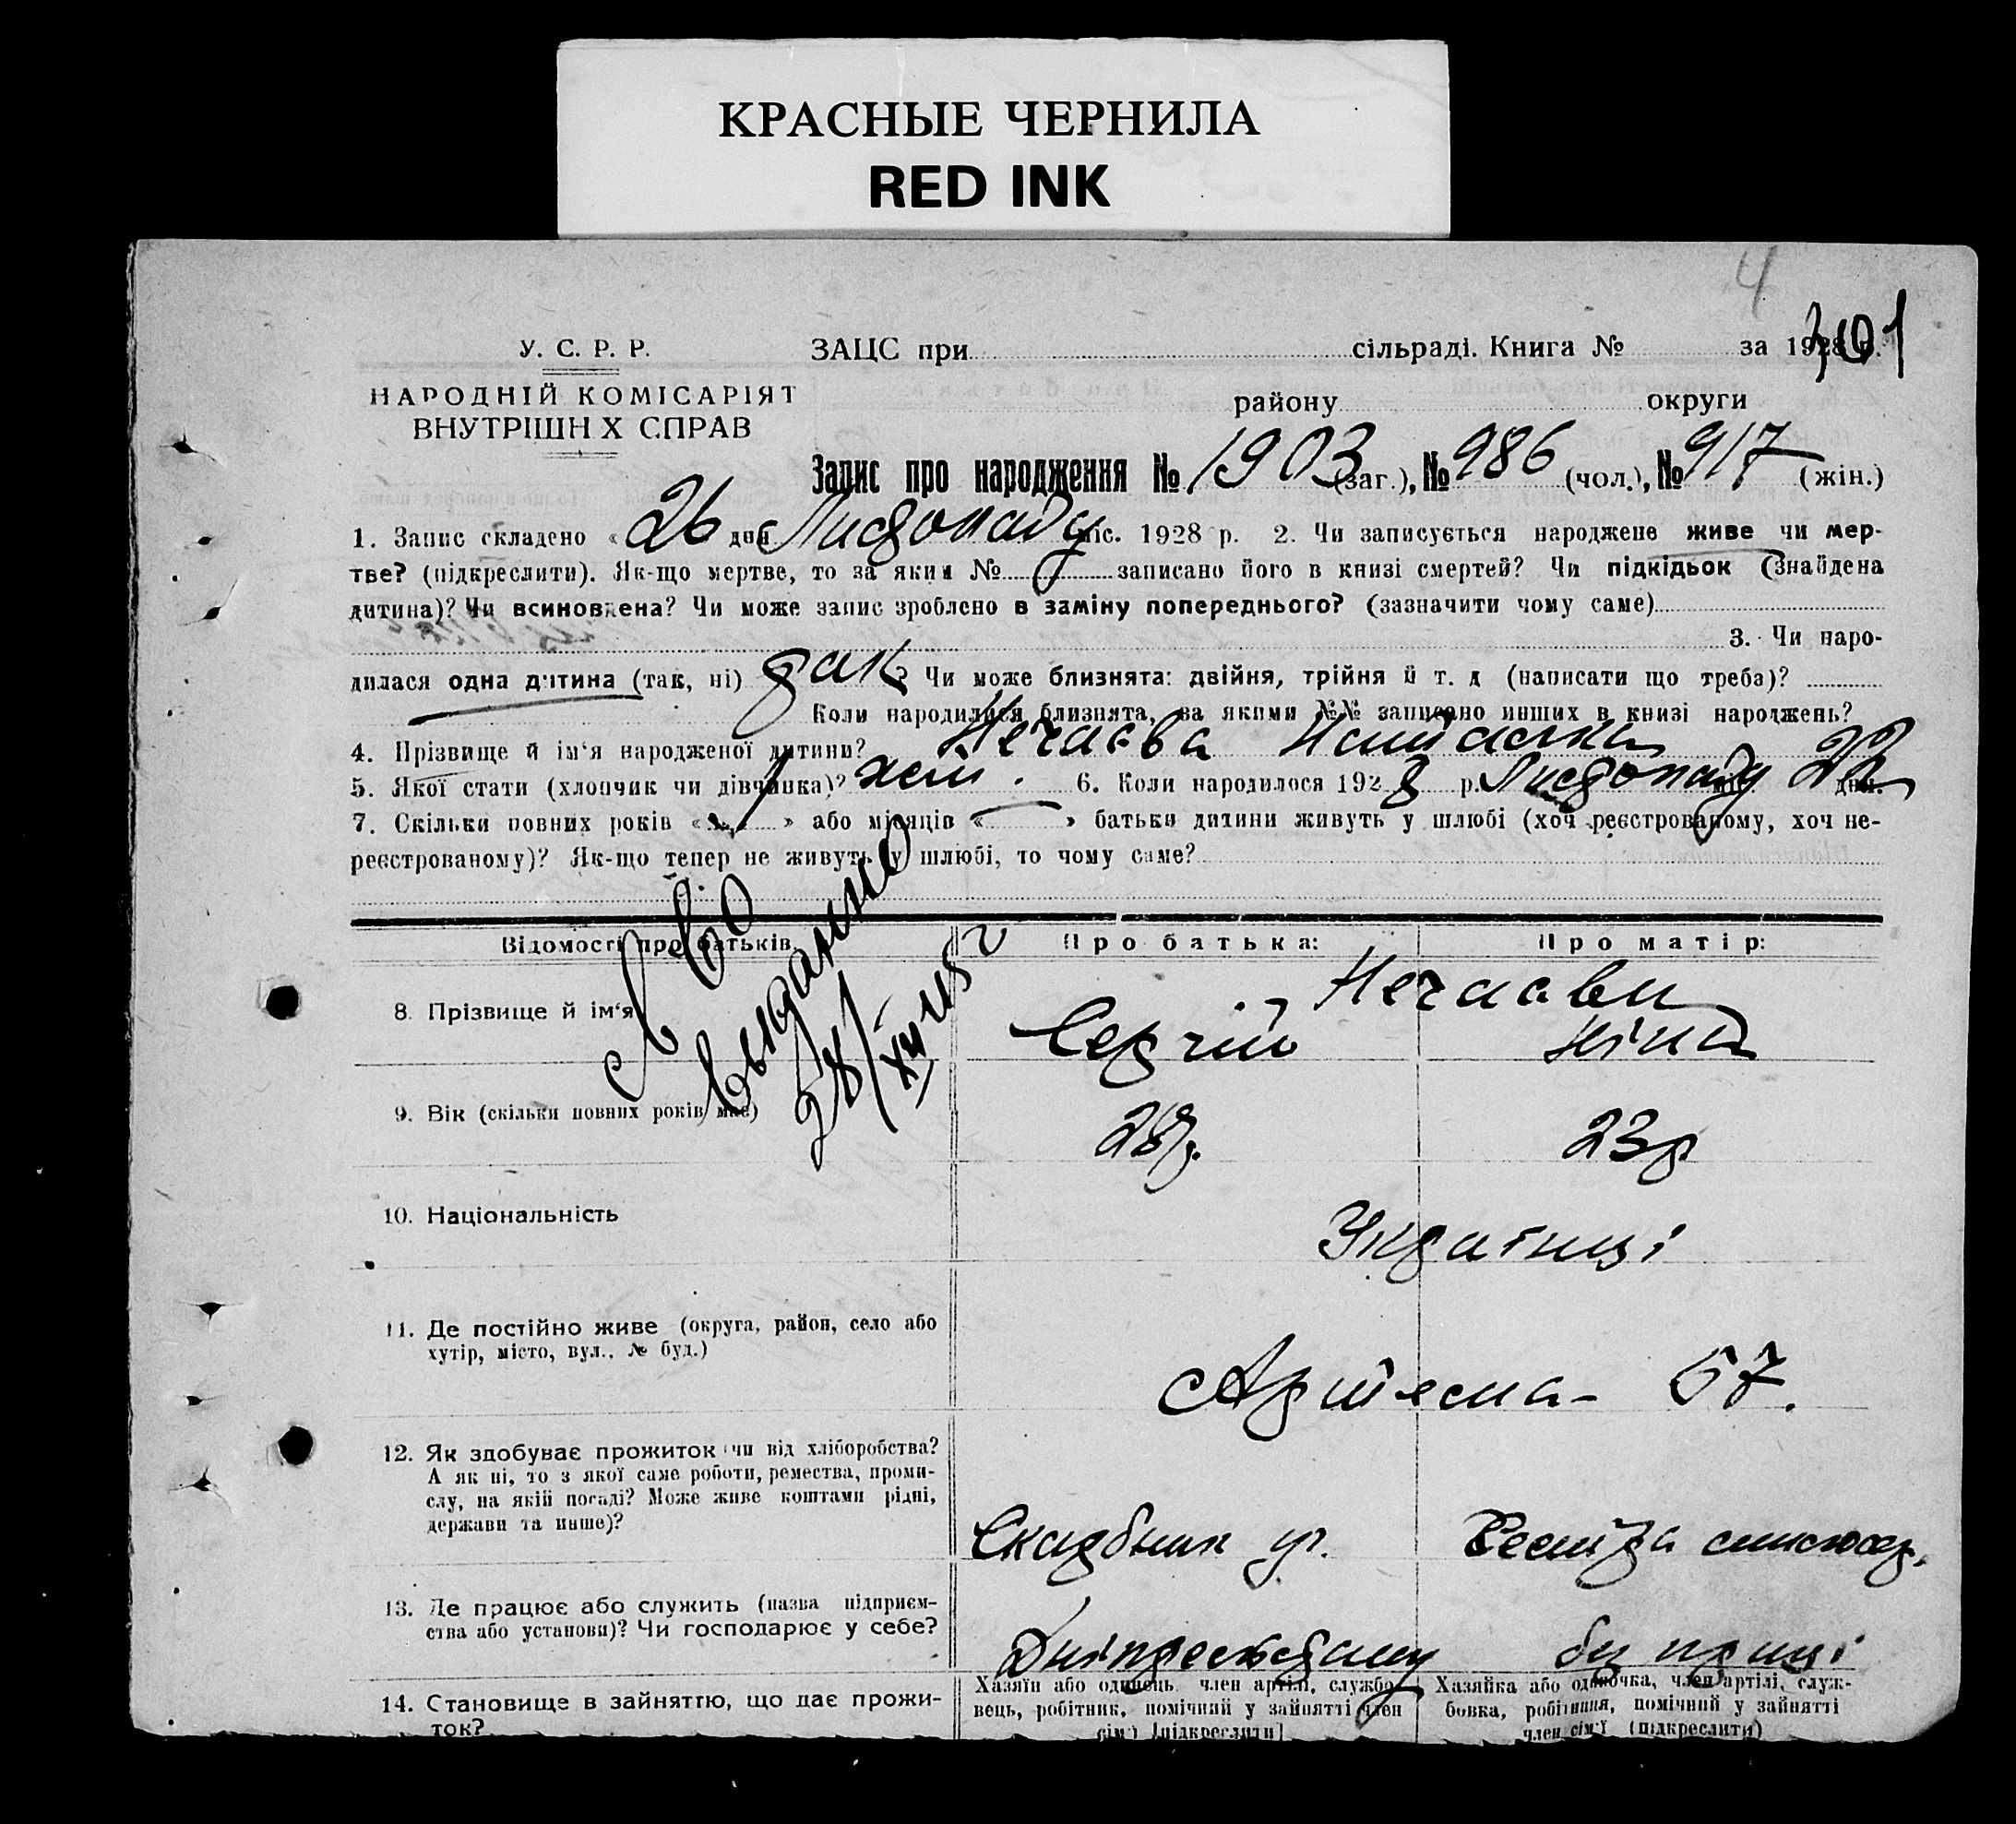 КРАСНЫЕ ЧЕРНИЛА
RED INK
4
301
У. С. Р. Р.
ЗАЦС при сільраді. Книга № за 1928 р.
НАРОДНІЙ КОМІСАРІЯТ
ВНУТРІШН Х СПРАВ
району округи
Запис про народження № 1903 (заг.), № 986 (чол.), № 917 (жін.)
1. Запис складено « 26 дня Листопаду міс. 1928 р. 2. Чи записується народжене живе чи мер-
тве? (підкреслити). Як-що мертве, то за яким № записано його в книзі смертей? Чи підкідьок (Знайдена
дитина)? Чи всиновлена? Чи може запис зроблено в заміну попереднього? (зазначити чому саме)
3. Чи наро-
дилася одна дитина (так, ні) так Чи може близнята: двійня, трійня й т. д (написати що треба)?
Коли народилися близнята, за якими №№ записано инших в книзі народжень?
4. Прізвище й ім'я народженої дитини? Нечаєва Наталка
5. Якої стати (хлопчик чи дівчинка)? жен. 6. Коли народилося 1928 р. Листопаду 22 дня.
7. Скільки повних років « » або місяців « » батьки дитини живуть у шлюбі (хоч реєстрованому, хоч не-
реєстрованому)? Як-що тепер не живуть у шлюбі, то чому саме?
Відомості про батьків Про батька: Про матір:
Нечаєви
8. Прізвище й ім'я Сергій Ніна
выданно
28/XII
9. Вік (скільки повних років має) 28р. 23р
10. Національність Українці
11. Де постійно живе (округа, район, село або
хутір, місто, вул., № буд.)
Артема- 57.
12. Як здобуває прожиток чи від хліборобства?
А як ні, то з якої саме роботи, ремества, проми-
слу, на якій посаді? Може живе коштами рідні,
держави та инше)?
13. Де працює або служить (назва підприєм-
ства або установи)? Чи господарює у себе?
бу праці
14. Становище в зайняттю, що дає прожи-
ток?
Хазяїн або одинець член артілі, службо-
вець, робітник, помічний у зайнятті член
сім'ї [підкреслити]
Хазяйка або одиночка, член артілі, служ-
бовка, робітниця, помічний у зайнятті
член сім'ї (підкреслити)